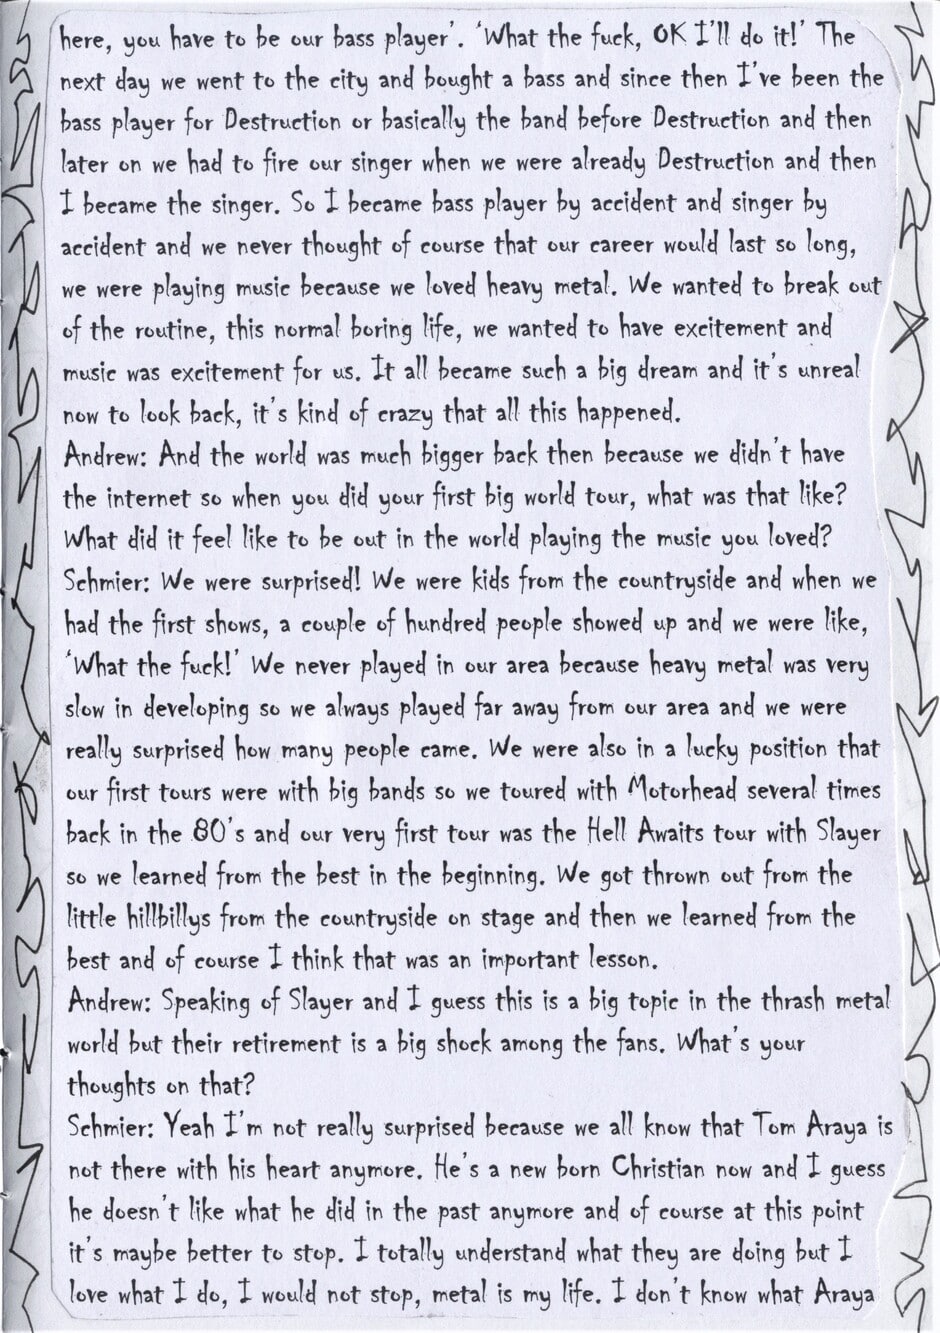 here, you have to be our bass player'. 'What the fuck, OK I'll do it!' The
next day we went to the city and bought a bass and since then I've been the
bass player for Destruction or basically the band before Destruction and then
later on we had to fire our singer when we were already Destruction and then
I became the singer. So I became bass player by accident and singer by
accident and we never thought of course that our career would last so long,
we were playing music because we loved heavy metal. We wanted to break out
of the routine, this normal boring life, we wanted to have excitement and
music was excitement for us. It all became such a big dream and it's unreal
now to look back, it's kind of crazy that all this happened.
Andrew: And the world was much bigger back then because we didn't have
the internet so when you did your first big world tour, what was that like?
What did it feel like to be out in the world playing the music you loved?
Schmier: We were surprised! We were kids from the countryside and when we
had the first shows, a couple of hundred people showed up and we were like,
'What the fuck!' We never played in our area because heavy metal was very
slow in developing so we always played far away from our area and we were
really surprised how many people came. We were also in a lucky position that
our first tours were with big bands so we toured with Motorhead several times
back in the 80's and our very first tour was the Hell Awaits tour with Slayer
so we learned from the best in the beginning. We got thrown out from the
little hillbillys from the countryside on stage and then we learned from the
best and of course I think that was an important lesson.
Andrew: Speaking of Slayer and I guess this is a big topic in the thrash metal
world but their retirement is a big shock among the fans. What's your
thoughts on that?
Schmier: Yeah I'm not really surprised because we all know that Tom Araya is
not there with his heart anymore. He's a new born Christian now and I guess
he doesn't like what he did in the past anymore and of course at this point
it's maybe better to stop. I totally understand what they are doing but I
love what I do, I would not stop, metal is my life. I don't know what Araya